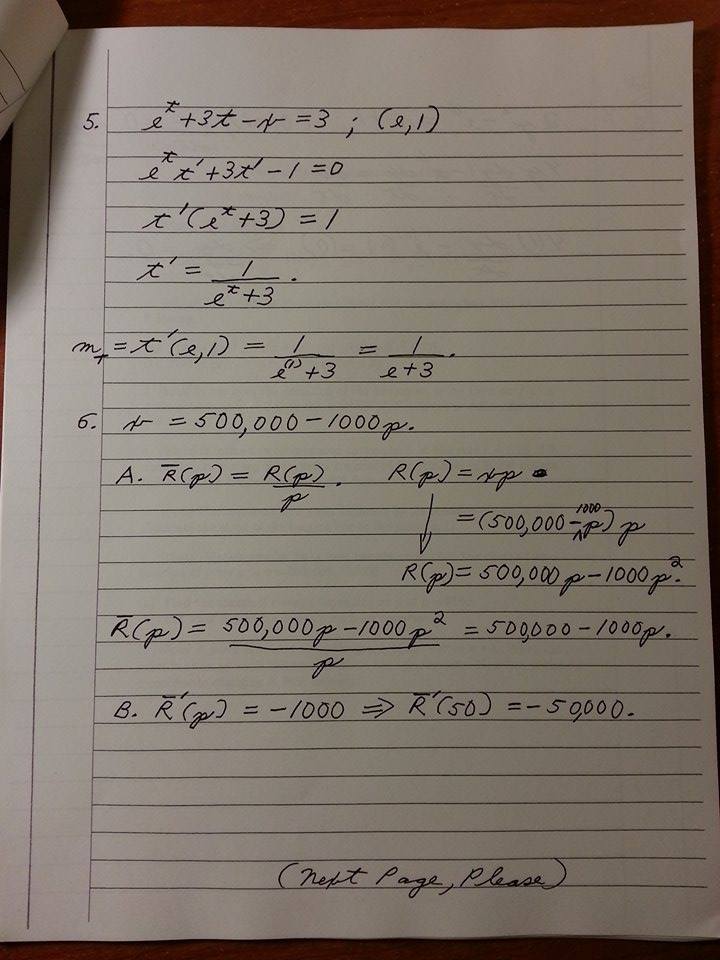 5. e^t + 3t - x = 3 ; (e,1)
e^t t' + 3t' - 1 = 0
t'(e^t + 3) = 1
t' = 1/(e^t + 3).
m_T = t'(e,1) = 1/(e^(1) + 3) = 1/(e + 3).
6. x = 500,000 - 1000p.
A. R̅(p) = R(p)/p. R(p) = xp
= (500,000 - 1000p)p
R(p) = 500,000p - 1000p².
R̅(p) = (500,000p - 1000p²)/p = 500,000 - 1000p.
B. R̅'(p) = -1000 ⇒ R̅'(50) = -50,000.
(Next Page, Please)